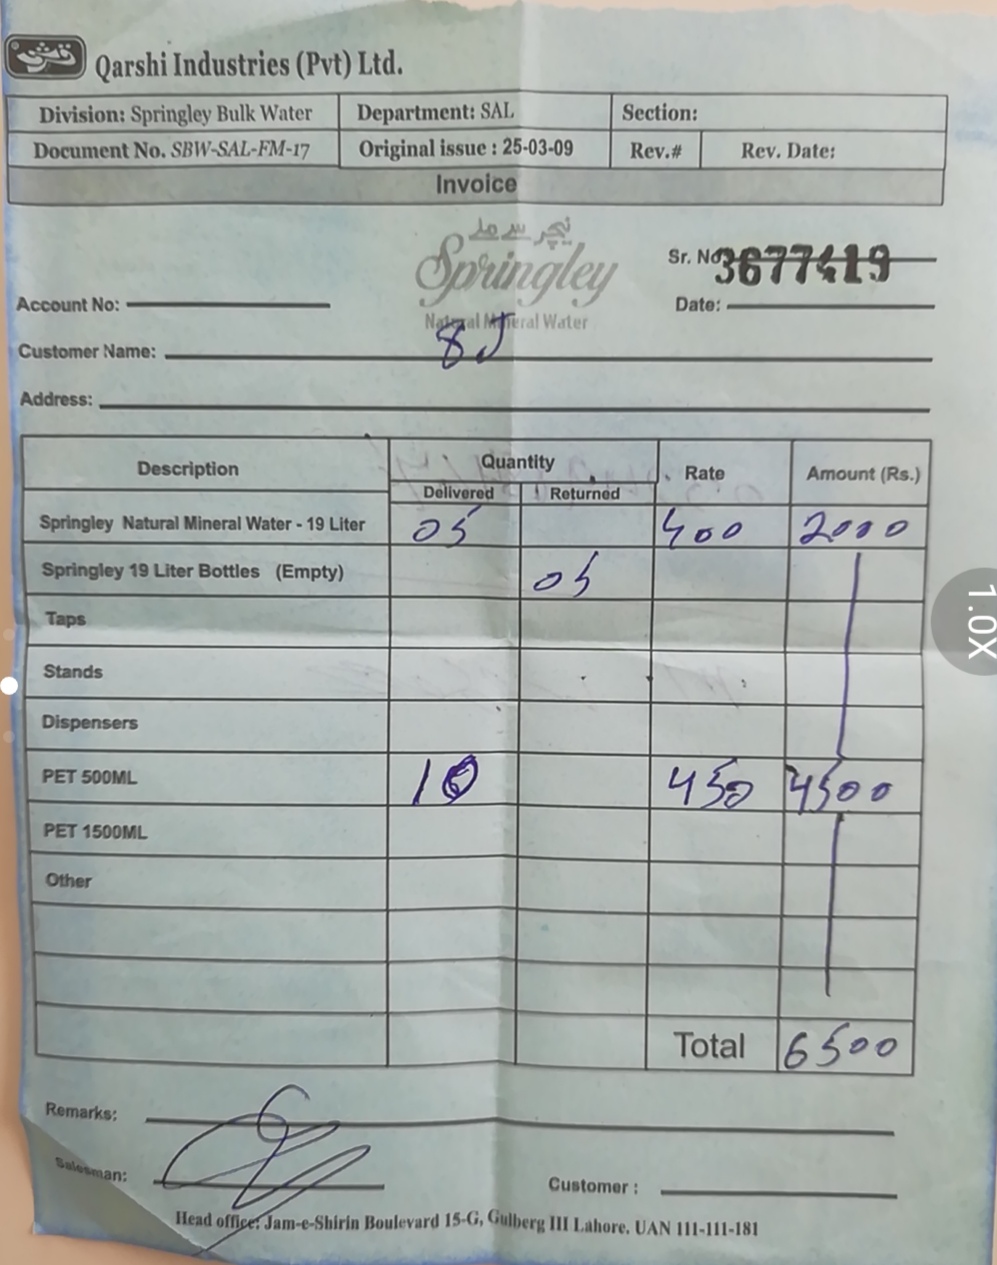 قرشی
Qarshi Industries (Pvt) Ltd.
Division: Springley Bulk Water Department: SAL Section:
Document No. SBW-SAL-FM-17 Original issue : 25-03-09 Rev.# Rev. Date:
Invoice
Springley
Natural Mineral Water
Sr. No 3677419
Account No: Date:
Customer Name: 8J
Address:
Description Quantity Rate Amount (Rs.)
Delivered Returned
Springley Natural Mineral Water - 19 Liter 05 400 2000
Springley 19 Liter Bottles (Empty) 05
Taps
Stands
Dispensers
PET 500ML 10 450 4500
PET 1500ML
Other
Total 6500
Remarks:
Salesman:
Customer :
Head office: Jam-e-Shirin Boulevard 15-G, Gulberg III Lahore. UAN 111-111-181
1.0X